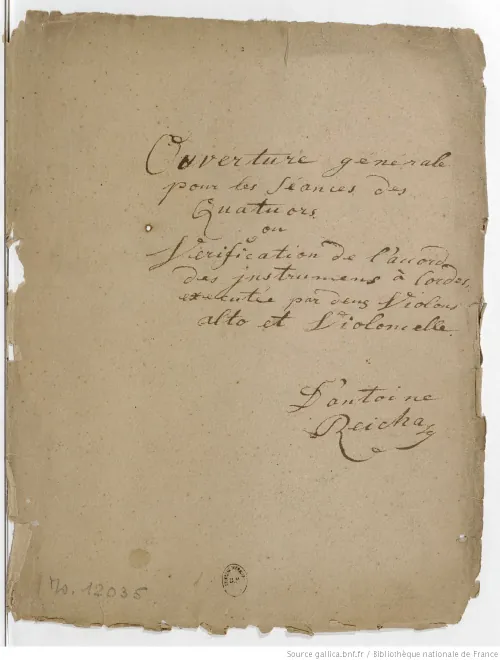 Ouverture générale
pour les Séances des
Quatuors
ou
Vérification de l'accord
des instrumens à cordes,
executée par deux Violons
alto et Violoncelle.
D'antoine
Reicha
Ms. 12036
Source gallica.bnf.fr / Bibliothèque nationale de France